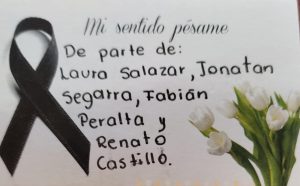 Mi sentido pésame
De parte de:
Laura Salazar, Jonatan
Segarra, Fabián
Peralta y
Renato
Castilló.